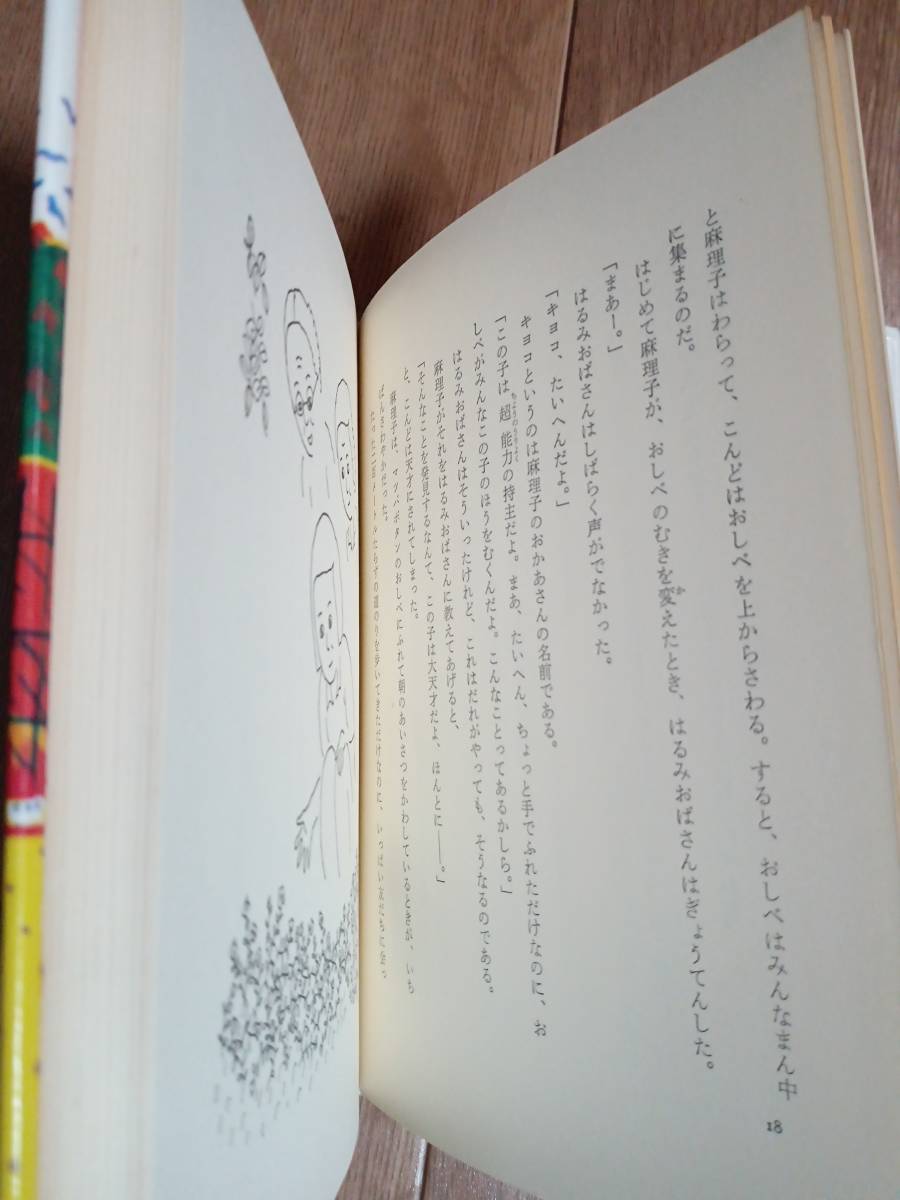 と麻理子はわらって、こんどはおしべを上からさわる。すると、おしべはみんなまん中
に集まるのだ。
はじめて麻理子が、おしべのむきを変えたとき、はるみおばさんはぎょうてんした。
「まあー。」
はるみおばさんはしばらく声がでなかった。
「キヨコ、たいへんだよ。」
キヨコというのは麻理子のおかあさんの名前である。
「この子は超能力の持主だよ。まあ、たいへん、ちょっと手でふれただけなのに、お
しべがみんなこの子のほうをむくんだよ。こんなことってあるかしら。」
はるみおばさんはそういったけれど、これはだれがやっても、そうなるのである。
麻理子がそれをはるみおばさんに教えてあげると、
「そんなことを発見するなんて、この子は大天才だよ、ほんとに――。」
と、こんどは天才にされてしまった。
麻理子は、マツバボタンのおしべにふれて朝のあいさつをかわしているときが、いち
ばんさわやかだった。
たった二百メートルたらずの道のりを歩いてきただけなのに、いっぱい友だちに会っ
18